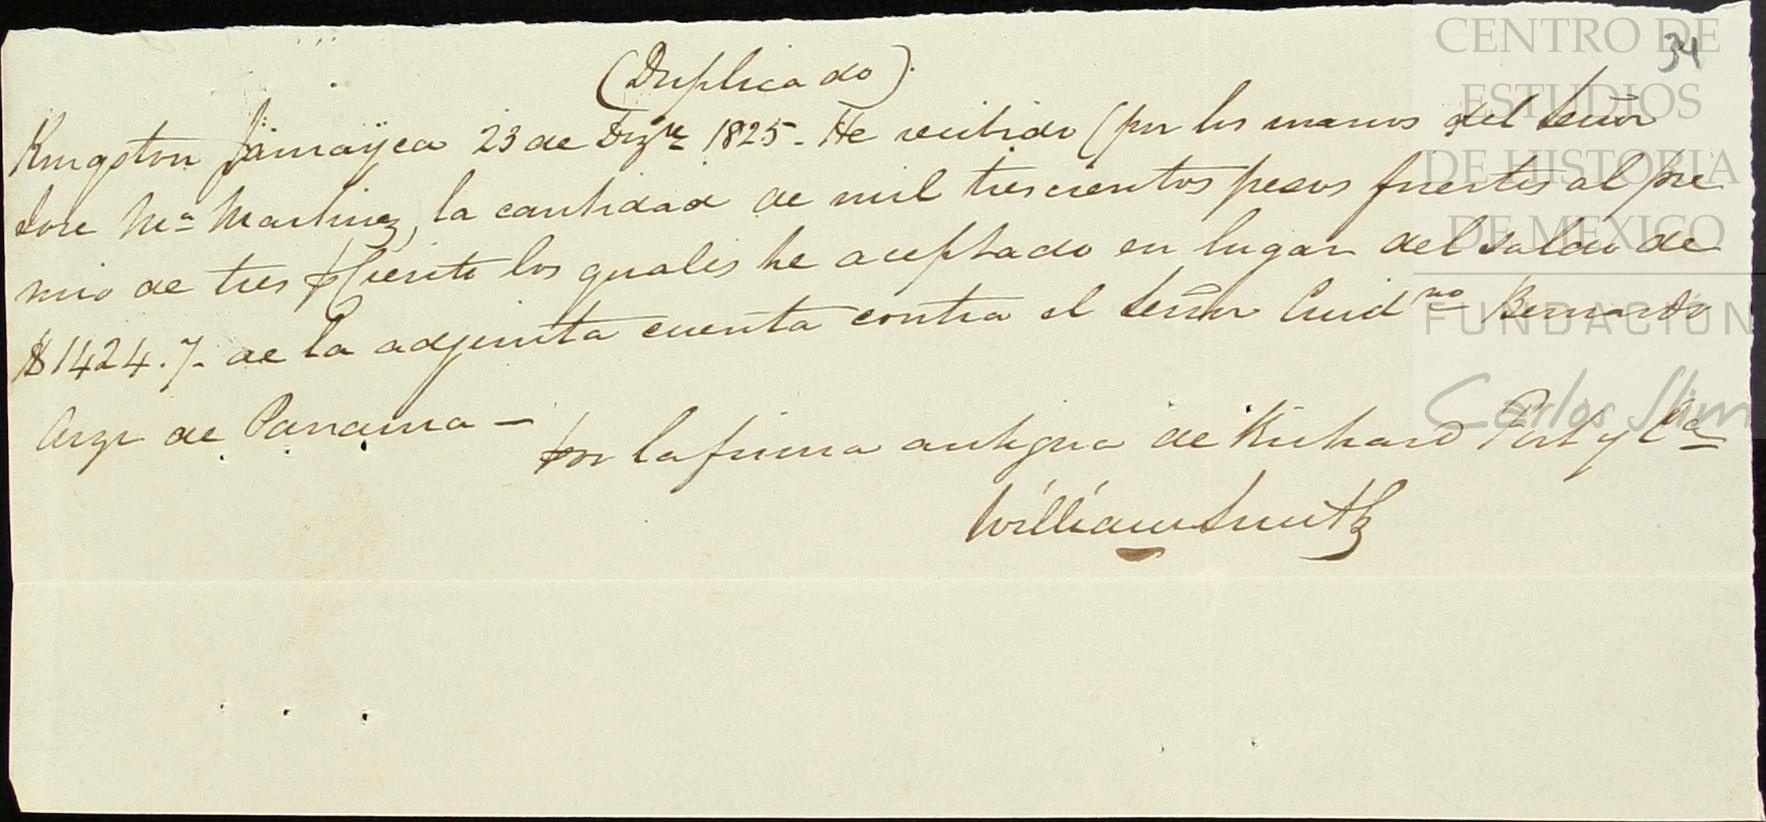 34
(Duplicado).
Kingston Jamayca 23 de Dizre 1825. He recibido (por los manos del Señor
Jose Ma Martinez, la cantidad de mil trescientos pesos fuertes al pre
mio de tres p Ciento los quales he aceptado en lugar del Saldo de
$1424.7. de la adjunta cuenta contra el Señor Bernardo
Arze de Panama —
por la firma antigua de Richard y Ca
William Smith
CENTRO DE
ESTUDIOS
DE HISTORIA
DE MEXICO
FUNDACIÓN
Carlos Slim